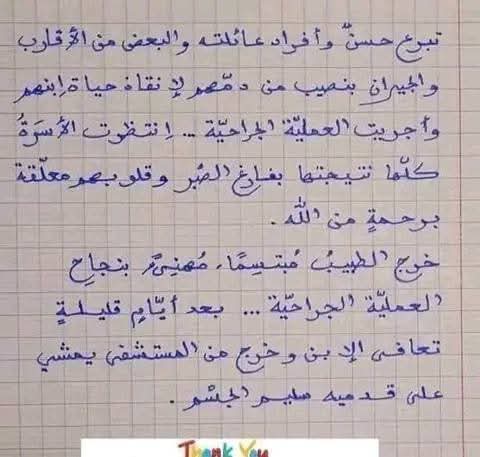 تبرع حسنٌ وأفراد عائلته والبعض من الأقارب
والجيران بنصيب من دمّهم لإنقاذ حياة إبنهم
وأجريت العمليّة الجراحيّة ... إنتظرت الأسرةُ
كلّها نتيجتها بفارغ الصّبر وقلوبهم معلّقة
برحمةٍ من الله.
خرج الطبيبُ مُبتسِمًا، مُهنِئً بنجاحِ
العمليّة الجراحيّة ... بعد أيّامٍ قليلةٍ
تعافى الإبن وخرج من المستشفى يمشي
على قدميه سليم الجسْم.
Thank You